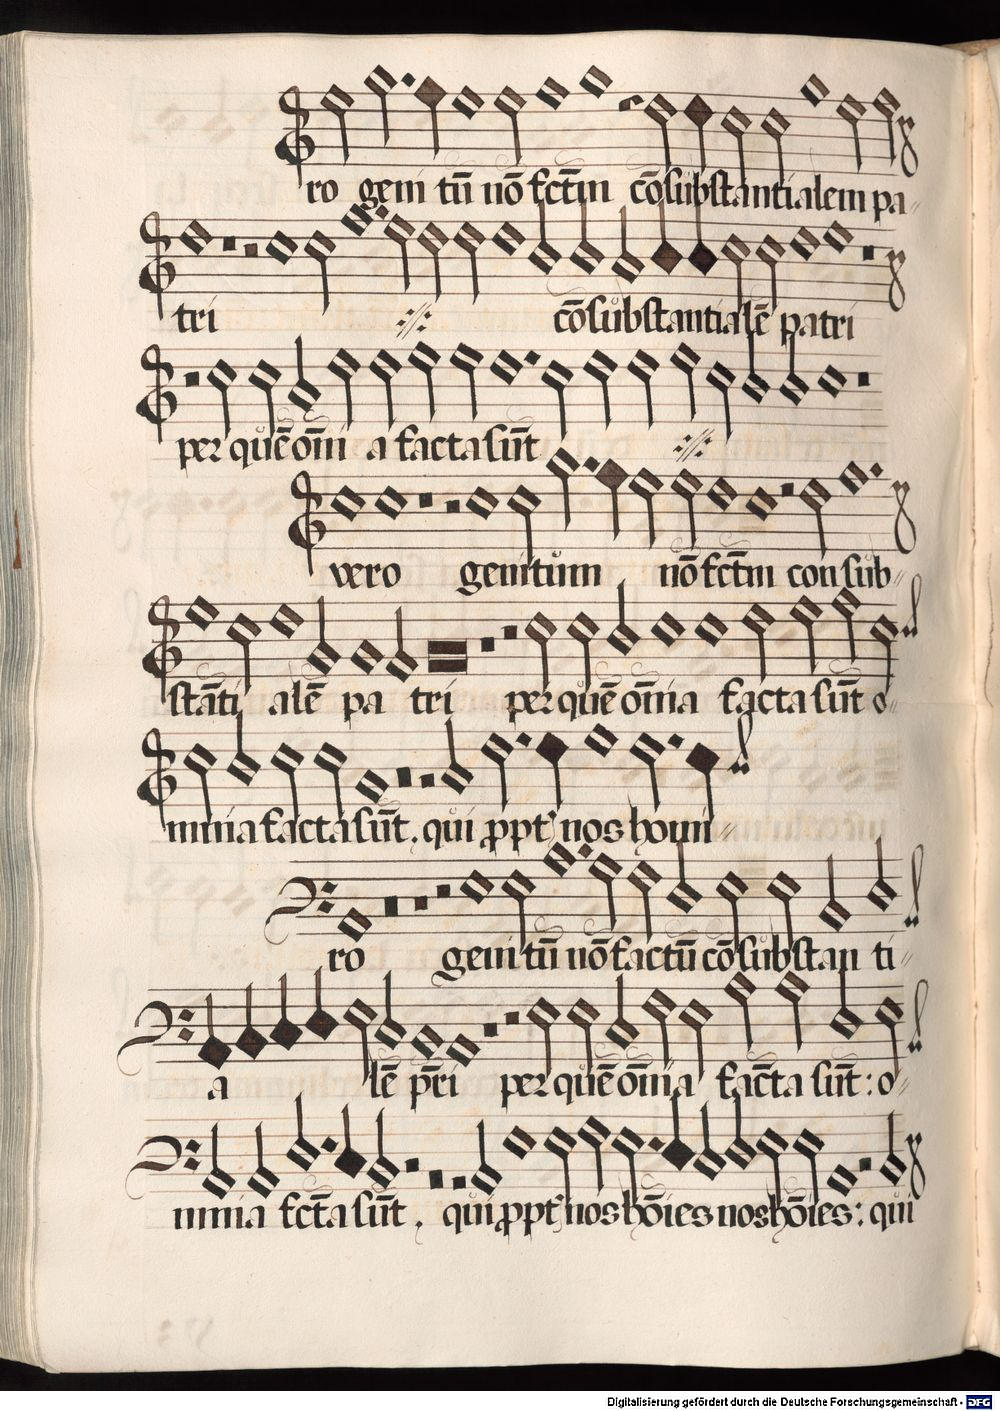 ro geni tū nō fct̄m cōsubstantialem pa〃
tri ·//· cōsubstantialē patri
per quē om̄i a facta sūnt ·//·
vero genitum nō fct̄m con sub〃
stāti alē pa tri per quē om̄ia facta sūnt o〃
mnia facta sūnt. qui ꝓpt' nos homi〃
ro geni tū nō factū cōsubstan ti〃
a lē pr̄i per quē om̄ia fac̄ta sūnt: o〃
mnia fct̄a sūnt. qui ꝓpt' nos hōies nos hōies: qui
Digitalisierung gefördert durch die Deutsche Forschungsgemeinschaft - DFG